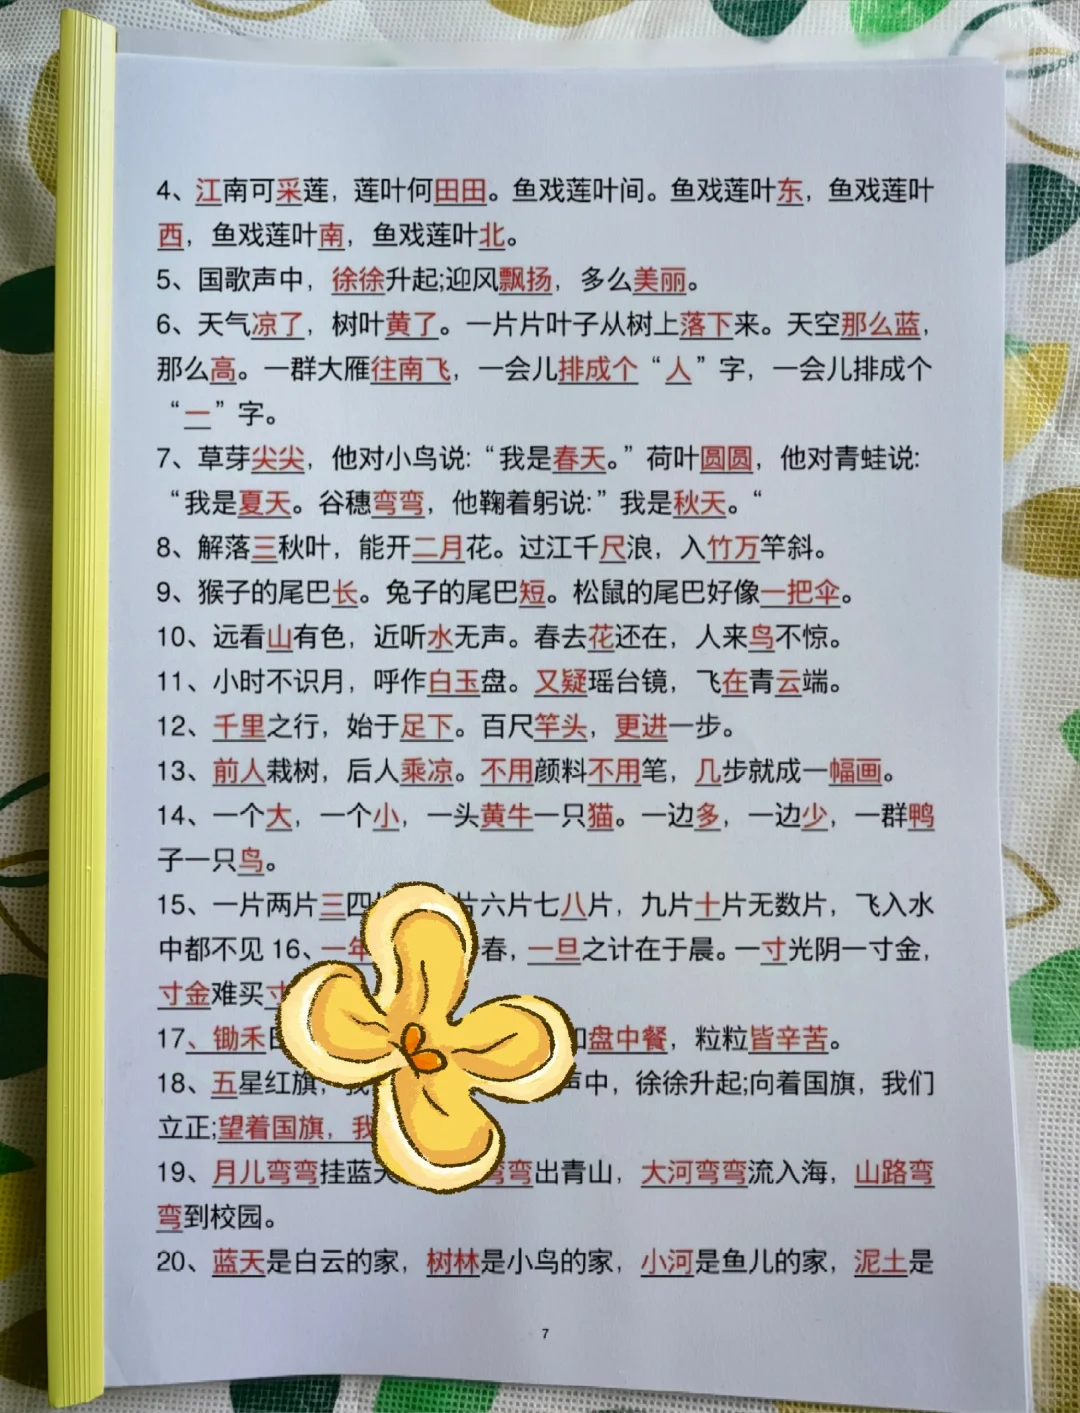 4、江南可采莲，莲叶何田田。鱼戏莲叶间。鱼戏莲叶东，鱼戏莲叶
西，鱼戏莲叶南，鱼戏莲叶北。
5、国歌声中，徐徐升起;迎风飘扬，多么美丽。
6、天气凉了，树叶黄了。一片片叶子从树上落下来。天空那么蓝，
那么高。一群大雁往南飞，一会儿排成个“人”字，一会儿排成个
“一”字。
7、草芽尖尖，他对小鸟说:“我是春天。”荷叶圆圆，他对青蛙说:
“我是夏天。谷穗弯弯，他鞠着躬说:”我是秋天。“
8、解落三秋叶，能开二月花。过江千尺浪，入竹万竿斜。
9、猴子的尾巴长。兔子的尾巴短。松鼠的尾巴好像一把伞。
10、远看山有色，近听水无声。春去花还在，人来鸟不惊。
11、小时不识月，呼作白玉盘。又疑瑶台镜，飞在青云端。
12、千里之行，始于足下。百尺竿头，更进一步。
13、前人栽树，后人乘凉。不用颜料不用笔，几步就成一幅画。
14、一个大，一个小，一头黄牛一只猫。一边多，一边少，一群鸭
子一只鸟。
15、一片两片三四 片六片七八片，九片十片无数片，飞入水
中都不见 16、一年 春，一旦之计在于晨。一寸光阴一寸金，
寸金难买
17、锄禾 盘中餐，粒粒皆辛苦。
18、五星红旗， 声中，徐徐升起;向着国旗，我们
立正;望着国旗，我
19、月儿弯弯挂蓝 弯出青山，大河弯弯流入海，山路弯
弯到校园。
20、蓝天是白云的家，树林是小鸟的家，小河是鱼儿的家，泥土是
7